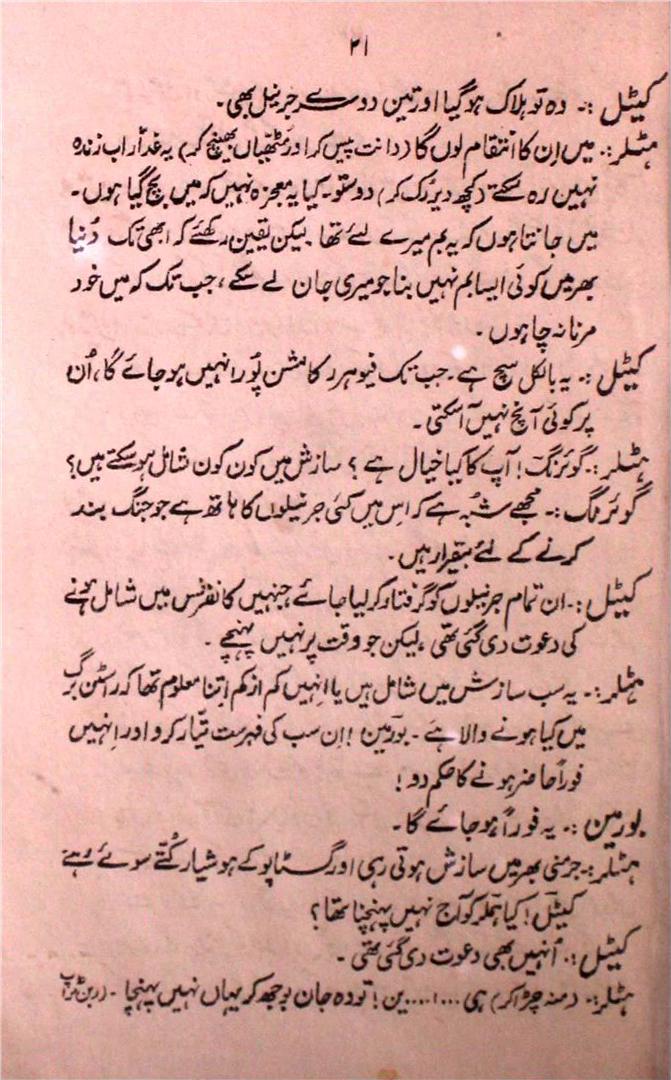 ۲۱
کیٹل :۔ وہ تو ہلاک ہو گیا اور تین دوسرے جرنیل بھی۔
ہٹلر:۔ میں اِن کا انتقام لوں گا (دانت پیس کر اور مُٹھیاں بھینچ کر) یہ غدّار اب زندہ
نہیں رہ سکتے (کچھ دیر رُک کر) دوستو۔ کیا یہ معجزہ نہیں کہ میں بچ گیا ہوں۔
میں جانتا ہوں کہ یہ بم میرے لئے تھا لیکن یقین رکھئے کہ ابھی تک دُنیا
بھر میں کوئی ایسا بم نہیں بنا جو میری جان لے سکے، جب تک کہ میں خود
مرنا نہ چاہوں۔
کیٹل :۔ یہ بالکل سچ ہے۔ جب تک فیوہرر کا مشن پُورا نہیں ہو جائے گا، اُن
پر کوئی آنچ نہیں آ سکتی۔
ہٹلر:۔ گوئرنگ! آپ کا کیا خیال ہے؟ سازش میں کون کون شامل ہو سکتے ہیں؟
گوئرنگ:۔ مجھے شُبہ ہے کہ اس میں کئی جرنیلوں کا ہاتھ ہے جو جنگ بند
کرنے کے لئے بیقرار ہیں۔
کیٹل :۔ ان تمام جرنیلوں کو گرفتار کر لیا جائے جنہیں کانفرنس میں شامل ہونے
کی دعوت دی گئی تھی، لیکن جو وقت پر نہیں پہنچے۔
ہٹلر:۔ یہ سب سازش میں شامل ہیں یا اِنہیں کم از کم اِتنا معلوم تھا کہ راسٹن برگ
میں کیا ہونے والا ہے۔ بورمین! اِن سب کی فہرست تیّار کرو اور اِنہیں
فوراً حاضر ہونے کا حکم دو!
بورمین :۔ یہ فوراً ہو جائے گا۔
ہٹلر:۔ جرمنی بھر میں سازش ہوتی رہی اور گسٹاپو کے ہوشیار کُتّے سوئے رہے
کیٹل! کیا ہملر کو آج نہیں پہنچنا تھا؟
کیٹل :۔ اُنہیں بھی دعوت دی گئی تھی۔
ہٹلر:۔ (منہ چڑا کر) ہی ...۔۔۔۔ ین! تو وہ جان بوجھ کر یہاں نہیں پہنچا۔